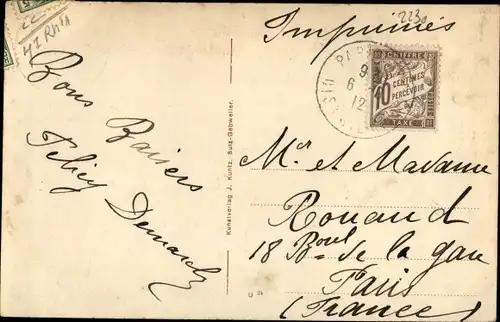 Imprimés
2230
PARIS
9
6
12
DISTRIBUTION
CHIFFRE
10 CENTIMES
À PERCEVOIR
TAXE
Bons
Baisers
Kunstverlag J. Kuntz, Sulz-Gebweiler.
Mr et Madame
Rouaud
18 Boul de la gare
Paris
(France)